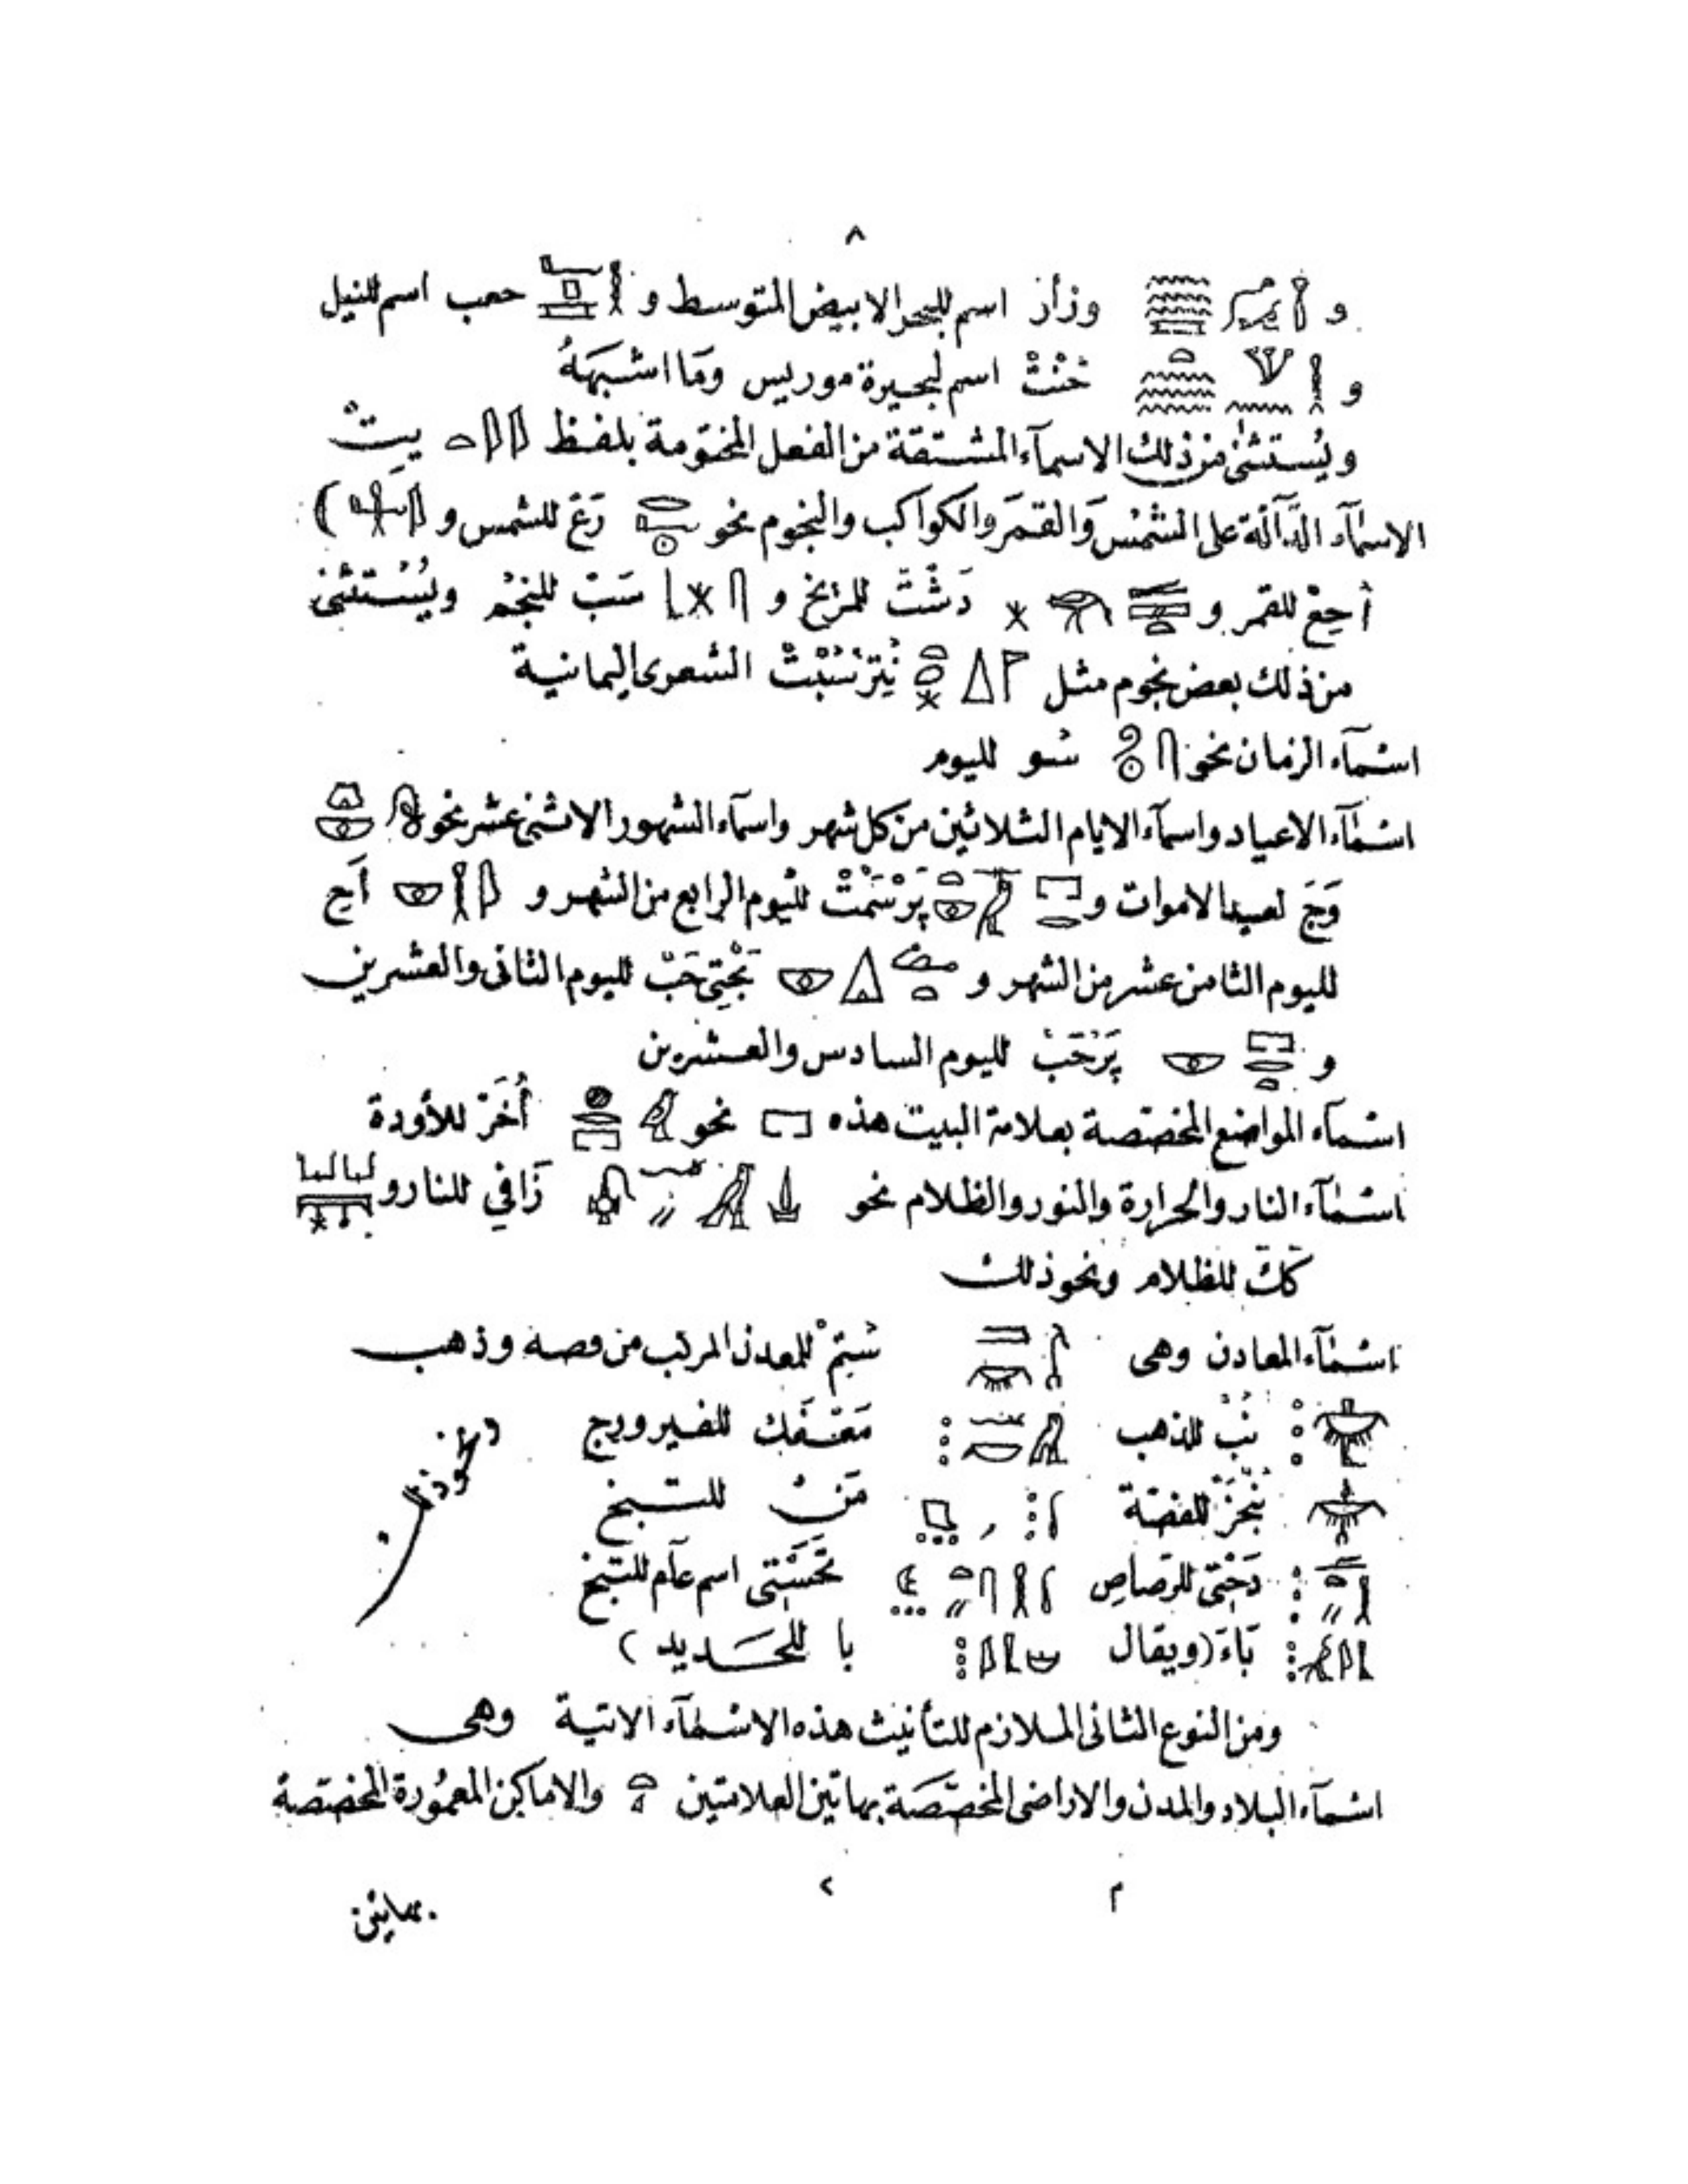 ٨
و وزأر اسم للبحر الابيض المتوسط و حعب اسم للنيل
و خنت اسم لبحيرة موريس وَمَا اشبَهَهُ
ويُستثنى من ذلك الاسمآء المشتقة من الفعل المختومة بلفظ يت
الاسمآء الدَّآلَّة على الشمس وَالقمَر والكواكب والنجوم نحو رَعَ للشمس و (
أحِعْ للقمر و دَشْتَ للمريخ و سَبّ للنجْم ويُسْتثنى
من ذلك بعض نجوم مثل الشعرى اليمانية
اسمآء الزمان نحو سو لليوم
اسمآء الاعياد واسمآء الايام الثلاثين من كل شهر واسمآء الشهور الاثنى عشر نحو
وَجَ لعيد الاموات و لليوم الرابع من الشهر و أَح
لليوم الثامن عشر من الشهر و لليوم الثانى والعشرين
و پَرْحَبْ لليوم السادس والعشرين
اسمآء المواضع المختصة بعلامة البيت هذه نحو أُخَرْ للأودة
اسمآء النار والحرارة والنور والظلام نحو زَافي للنار و
كَكْ للظلام ونحو ذلك
اسمآء المعادن وهى للمعدن المركب من فضة وذهب
نُبْ للذهب مَعْفَك للفيروزج
للفضّة للتسبخ
دَحْتى للرّصاص اسم عآم للتسبخ
بَاءَ (ويقال با للحَديد)
ونحو ذلك
ومن النوع الثانى الملازم للتأنيث هذه الاسمآء الاتية وهى
اسمآء البلاد والمدن والاراضى المخصّصَة بهاتين العلامتين والاماكن المعمُورة المخصّصة
م ٢
بهاتين